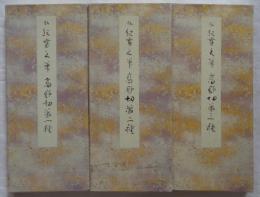 伝紀貫之筆 高野切第一種
伝紀貫之筆 高野切第二種
伝紀貫之筆 高野切第三種